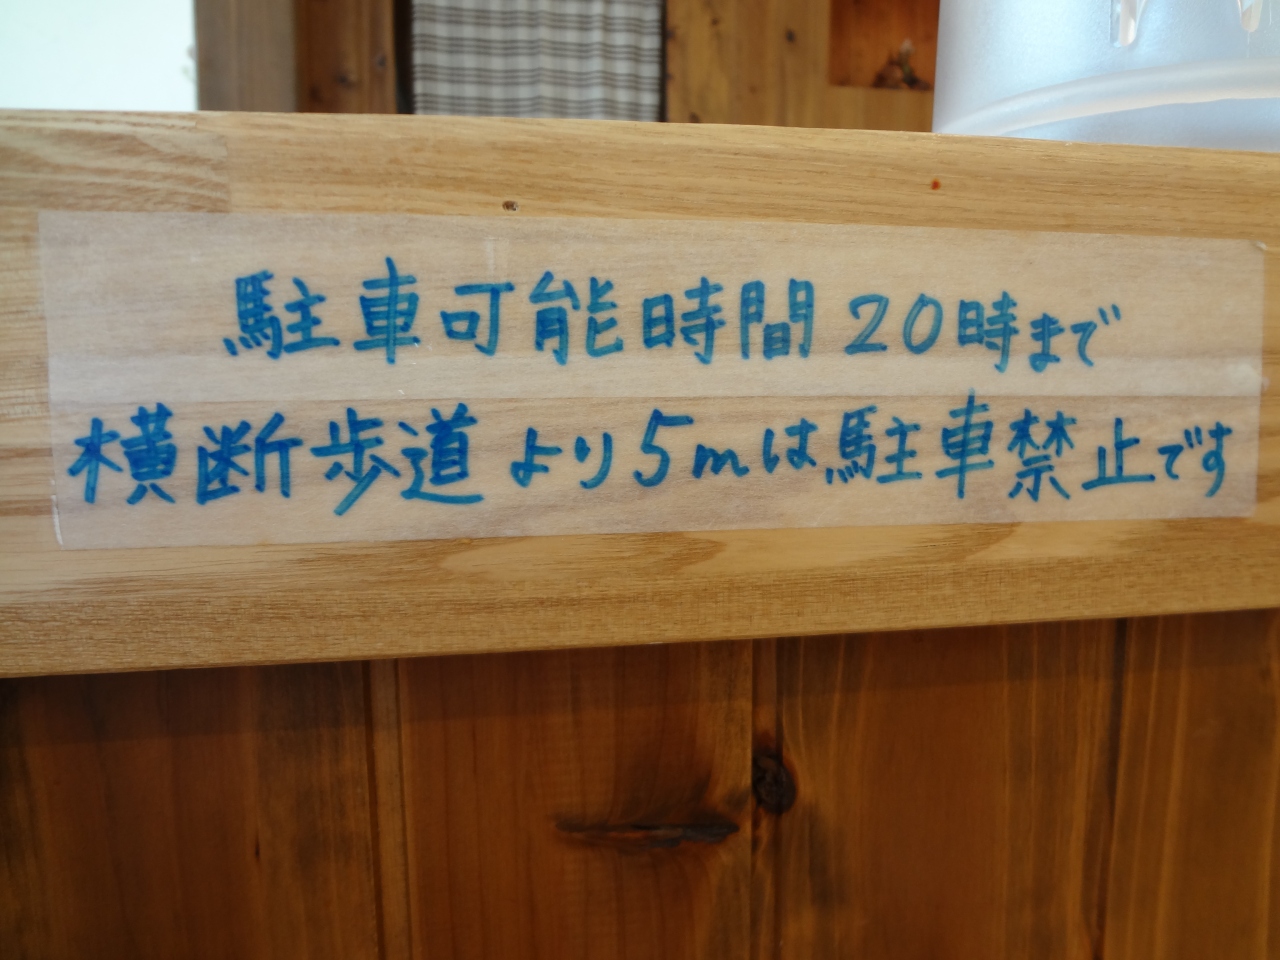 駐車可能時間 20時まで
横断歩道より5mは駐車禁止です